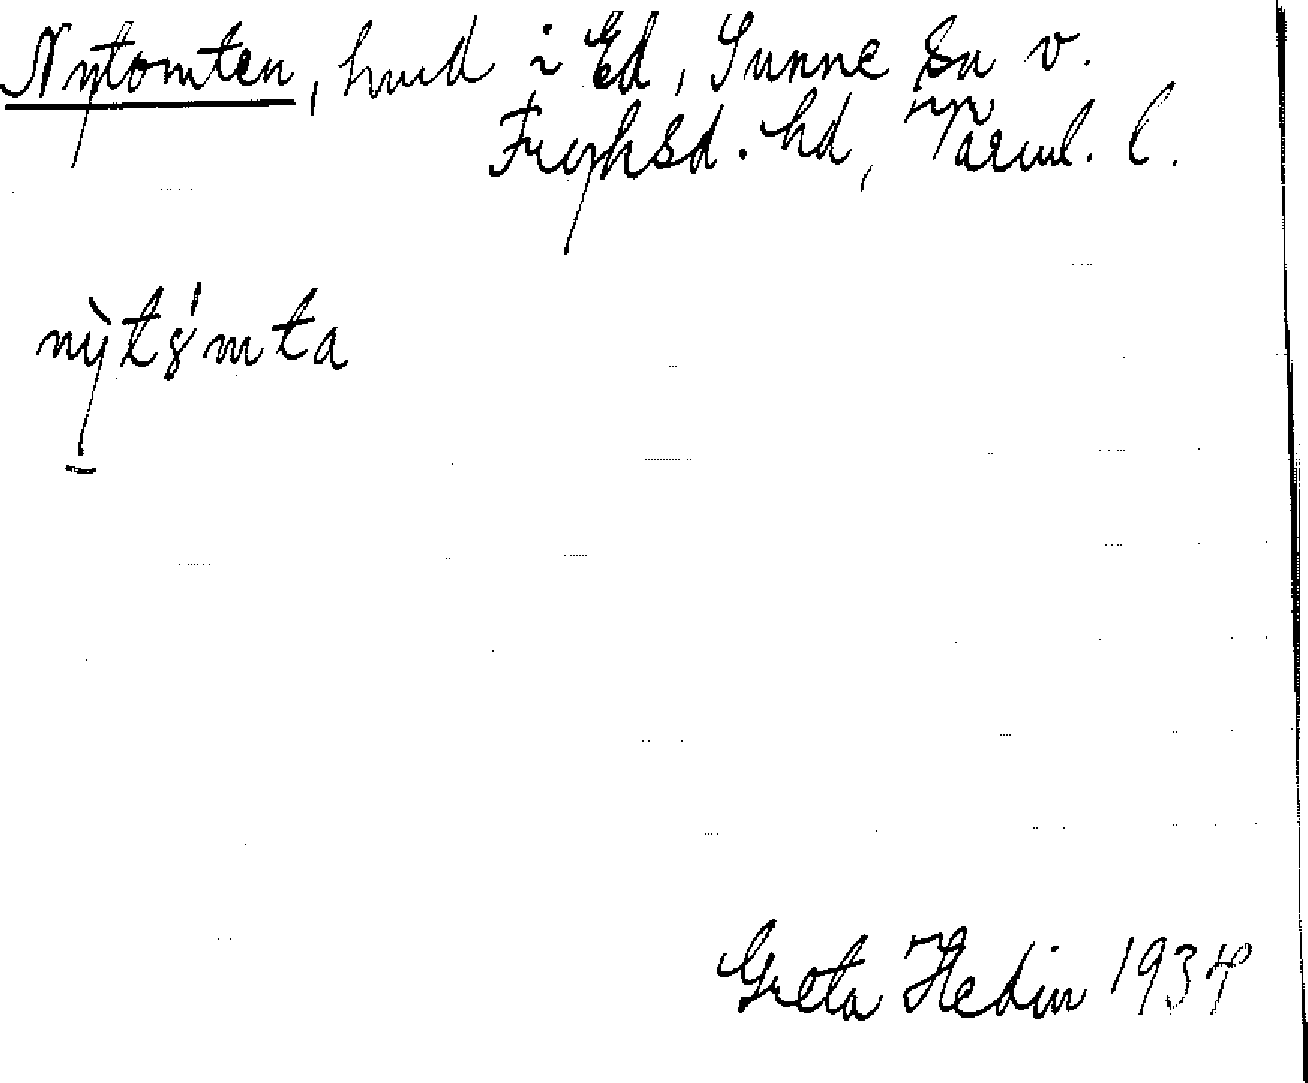 Nytomten, hmd i Ed, Sunne sn v.
Fryksd. hd, Värml. l.
nỳtȣ́mta
Greta Hedin 1934